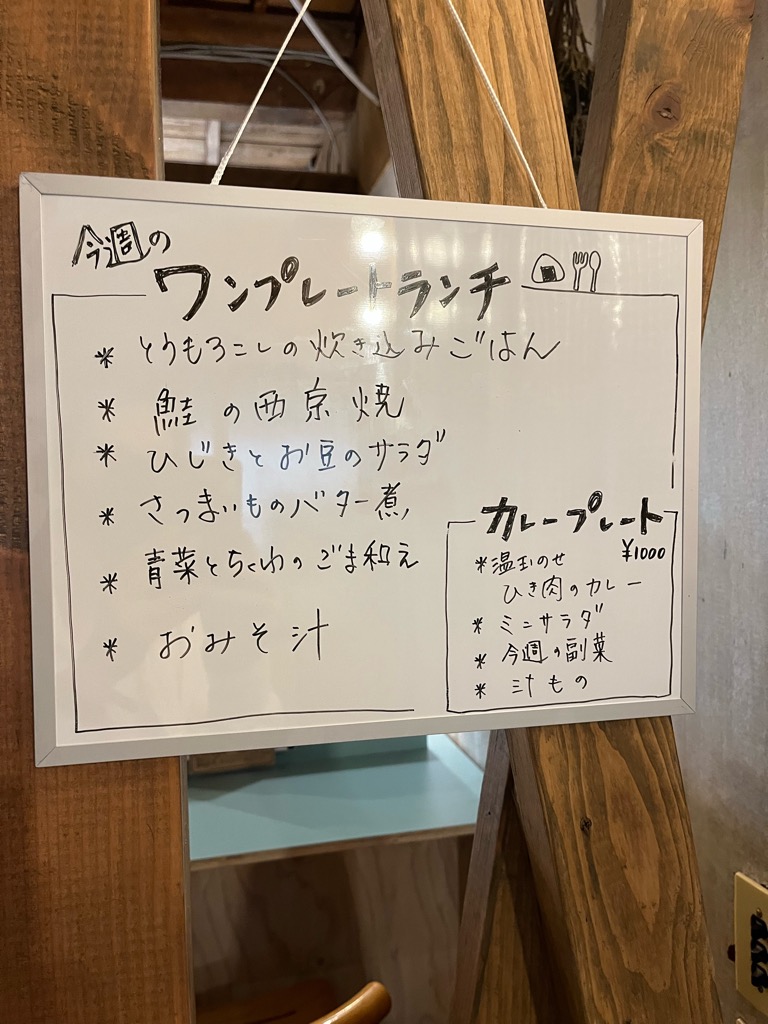 今週の
ワンプレートランチ
* とうもろこしの炊き込みごはん
* 鮭の西京焼
* ひじきとお豆のサラダ
* さつまいものバター煮
* 青菜とちくわのごま和え
* おみそ汁
カレープレート
¥1000
* 温玉のせ
ひき肉のカレー
* ミニサラダ
* 今週の副菜
* 汁もの